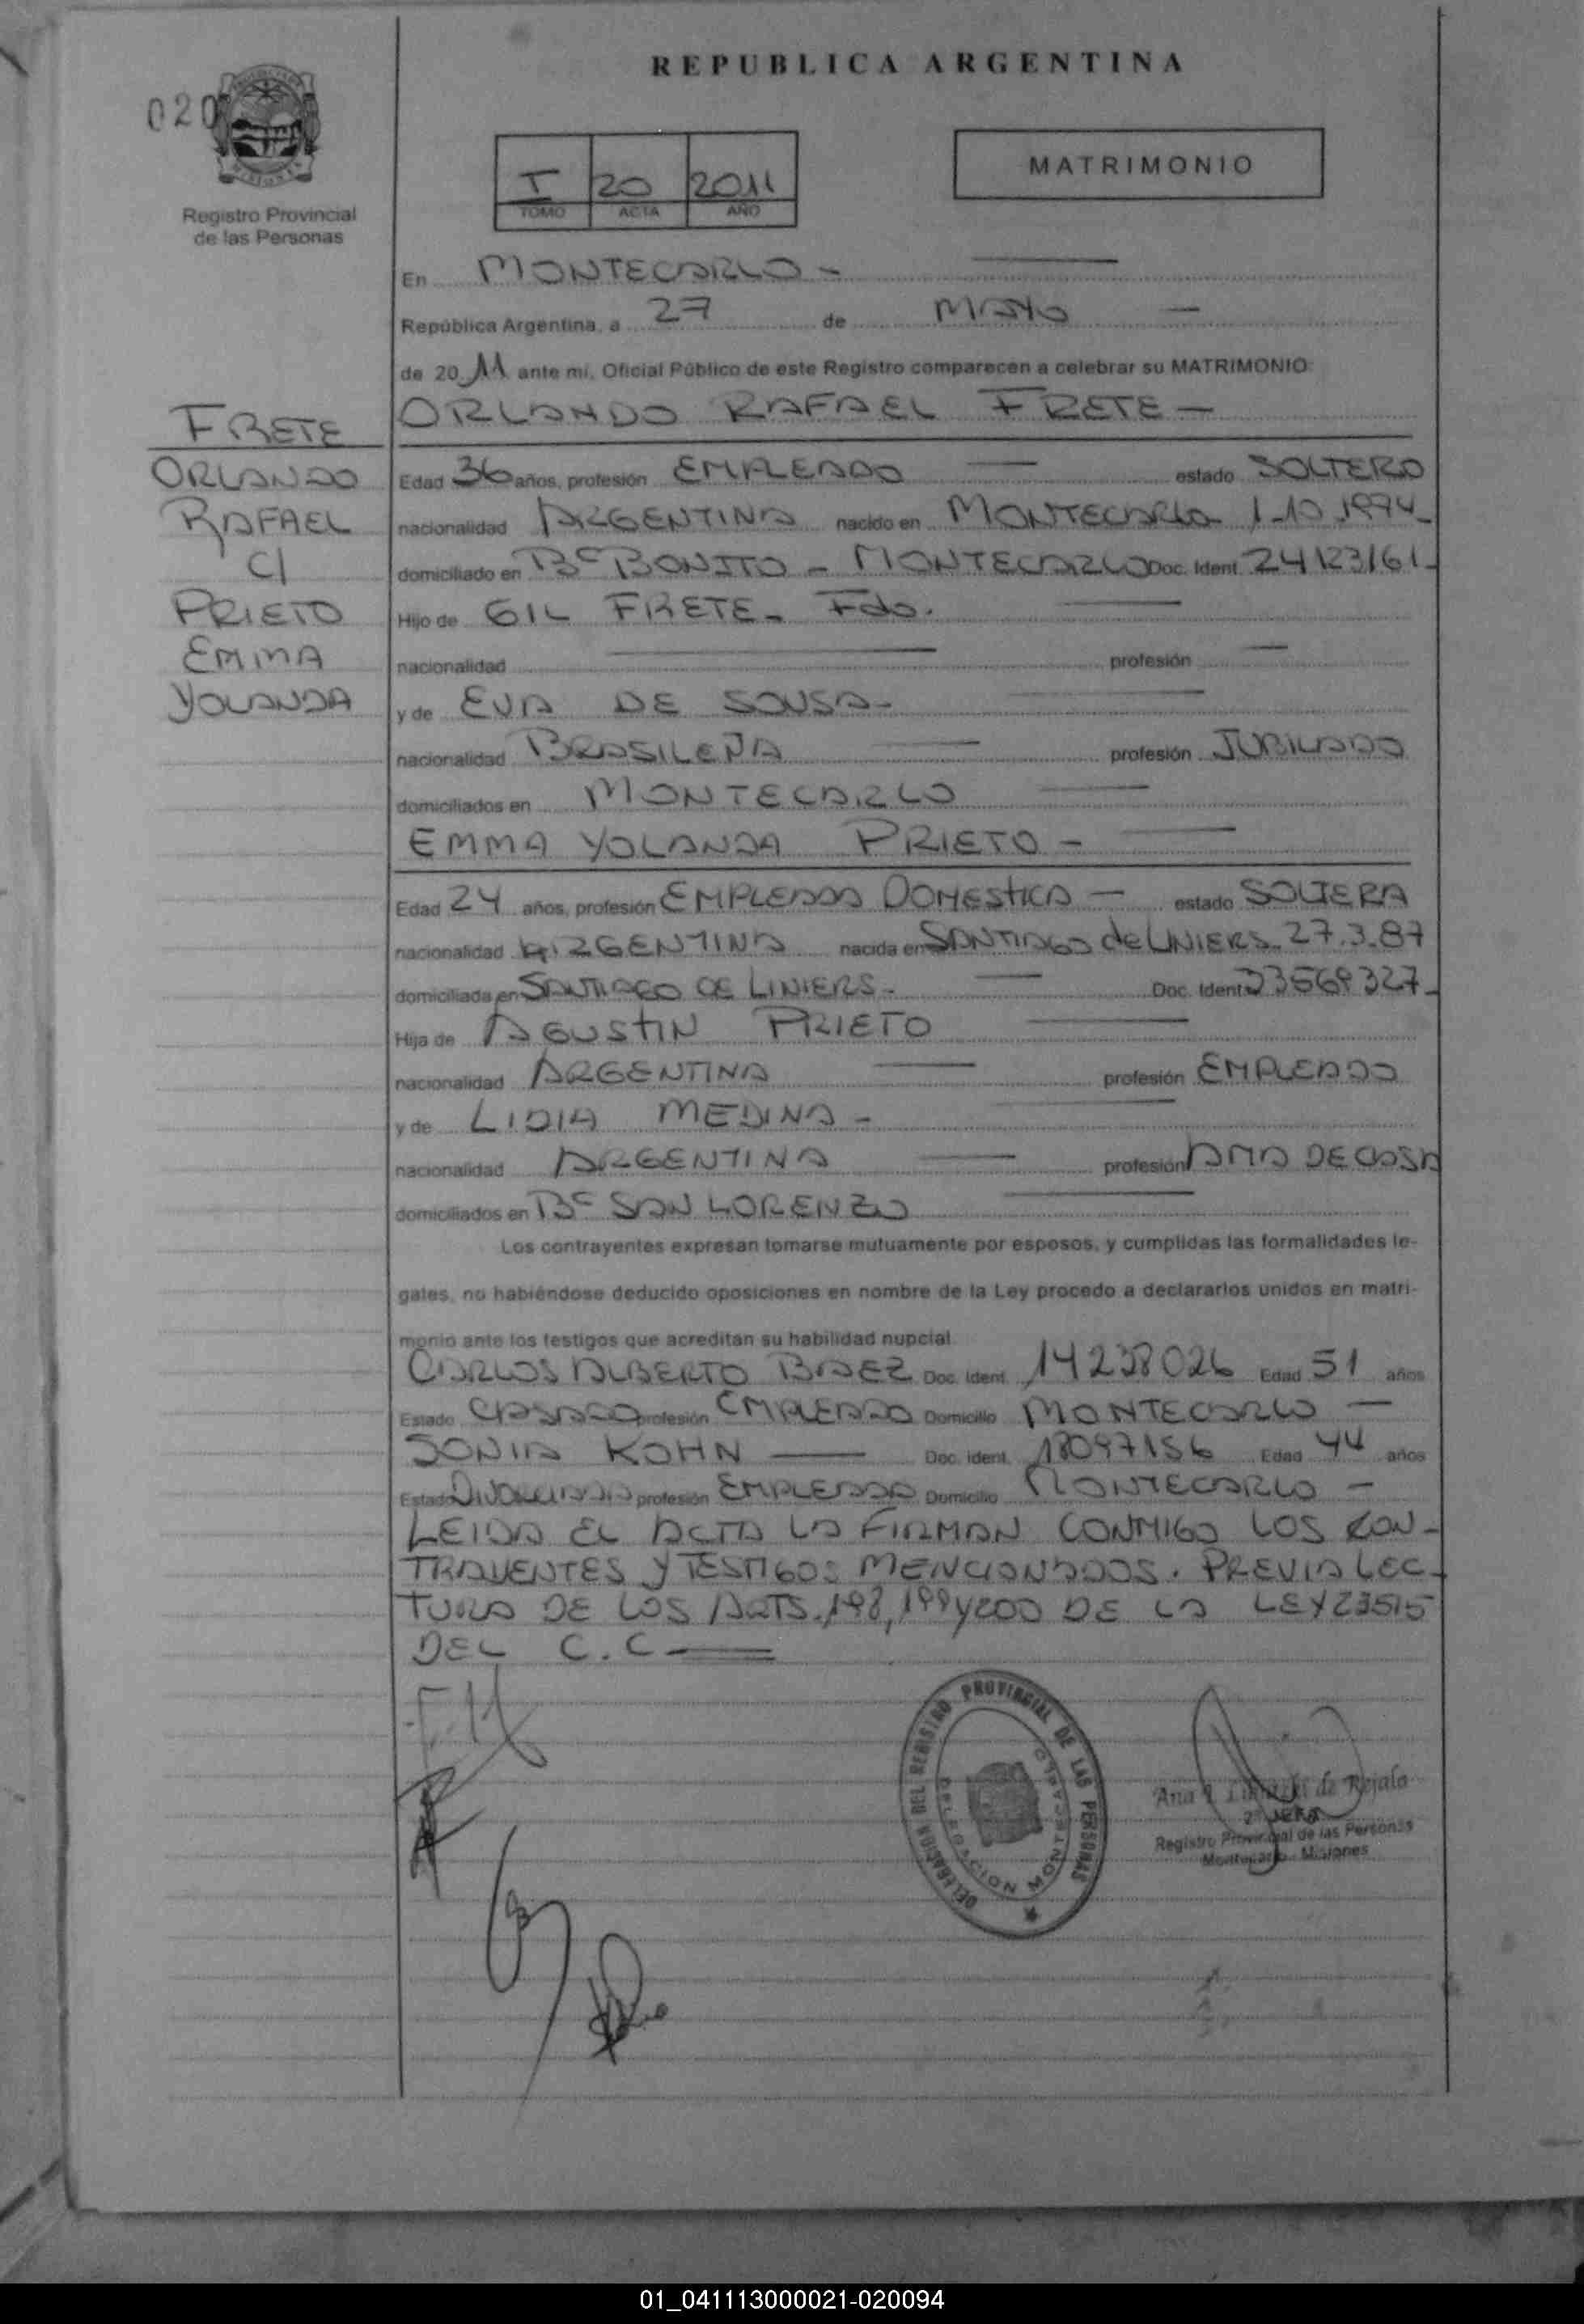 REPUBLICA ARGENTINA
020
MATRIMONIO
I 20 2011
TOMO ACTA AÑO
Registro Provincial
de las Personas
En MONTECARLO -
República Argentina, a 27 de MAYO -
de 2011 ante mí, Oficial Público de este Registro comparecen a celebrar su MATRIMONIO:
ORLANDO RAFAEL FRETE -
FRETE
ORLANDO
RAFAEL
C/
PRIETO
EMMA
YOLANDA
Edad 36 años, profesión EMPLEADO estado SOLTERO
nacionalidad ARGENTINA nacido en MONTECARLO 1-10-1974-
domiciliado en Bº BONITO - MONTECARLO Doc. Ident. 24123161-
Hijo de GIL FRETE - Fdo.
nacionalidad profesión
y de EVA DE SOUSA -
nacionalidad BRASILEÑA profesión JUBILADO
domiciliados en MONTECARLO
EMMA YOLANDA PRIETO -
Edad 24 años, profesión EMPLEADA DOMESTICA - estado SOLTERA
nacionalidad ARGENTINA nacida en SANTIAGO de LINIERS - 27.3.87
domiciliada en SANTIAGO DE LINIERS - Doc. Ident.
Hija de AGUSTIN PRIETO
nacionalidad ARGENTINA profesión EMPLEADO
y de LIDIA MEDINA -
nacionalidad ARGENTINA profesión AMA DE CASA
domiciliados en Bº SAN LORENZO
Los contrayentes expresan tomarse mutuamente por esposos, y cumplidas las formalidades le-
gales, no habiéndose deducido oposiciones en nombre de la Ley procedo a declararlos unidos en matri-
monio ante los testigos que acreditan su habilidad nupcial.
CARLOS ALBERTO BAEZ Doc. Ident. 14238026 Edad 51 años
Estado CASADO profesión EMPLEADO Domicilio MONTECARLO -
SONIA KOHN Doc. ident. 18097156 Edad 44 años
Estado DIVORCIADA profesión EMPLEADA Domicilio MONTECARLO -
LEIDA EL ACTA LA FIRMAN CONMIGO LOS CON-
TRAYENTES Y TESTIGOS MENCIONADOS. PREVIA LEC-
TURA DE LOS ARTS. 198, 199 y 200 DE LA LEY 23515
DEL C.C
DELEGACION DEL REGISTRO PROVINCIAL DE LAS PERSONAS
DELEGACION MONTECARLO
Ana de Rejala
2º JEFE
Registro Provincial de las Personas
Montecarlo - Misiones
01_041113000021-020094